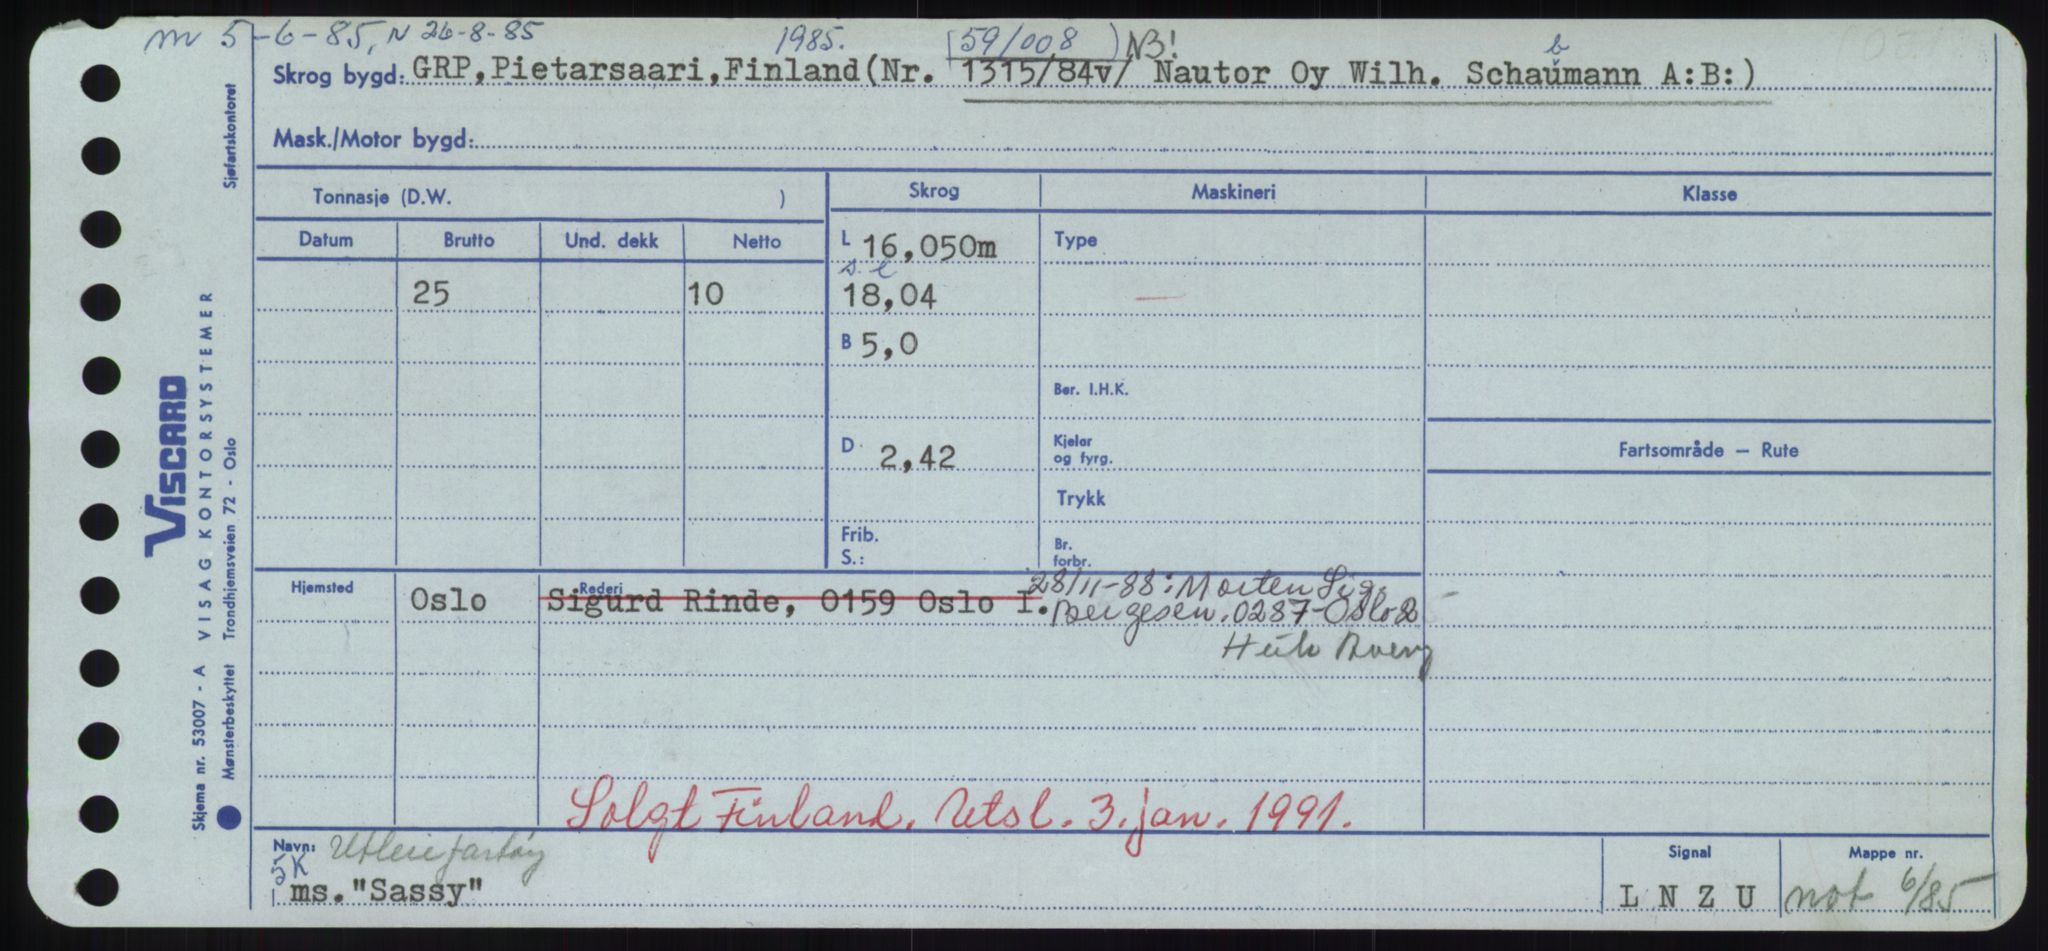 m 5-6-85, N 26-8-85 1985. 59/008 NB!
Skrog bygd: GRP, Pietarsaari, Finland (Nr. 1315/84v/ Nautor Oy Wilh. Schaumann A:B:)
b
Mask./Motor bygd:
Tonnasje (D.W. ) Skrog Maskineri Klasse
Datum Brutto Und. dekk Netto L 16,050m Type
s. l
25 10 18,04
B 5,0
Ber. I.H.K.
D 2,42 Kjeler og fyrg. Fartsområde — Rute
Trykk
Frib. S.: Br. forbr.
Hjemsted Rederi 28/11-88: Morten Sig.
Oslo Sigurd Rinde, 0159 Oslo I. Bergesen. 0287-Oslo 2
Solgt Finland. Utsl. 3. jan. 1991.
Navn: Utleiefartøy Signal Mappe nr.
SK
ms. "Sassy" L N Z U not 6/85
Sjøfartskontoret
VISCARD
VISAG KONTORSYSTEMER
Skjema nr. 53007 - A
Mønsterbeskyttet Trondhjemsveien 72 - Oslo